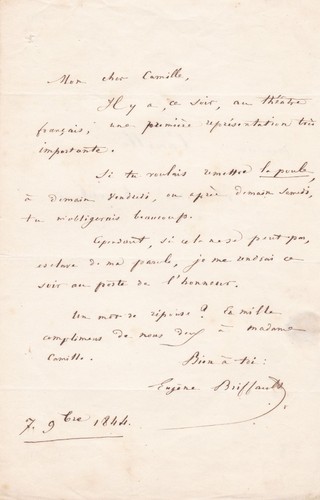 Mon cher Camille,
Il y a, ce soir, au théatre
français, une première représentation très
importante.
Si tu voulais remettre la poule,
à demain vendredi, ou après demain samedi,
tu m'obligerais beaucoup.
Cependant, si cela ne se peut pas,
esclave de ma parole, je me rendrai ce
soir au poste de l'honneur.
Un mot de réponse? Et mille
compliments de nous deux à madame
Camille.
Bien à toi:
Eugène Briffault
7. 9bre 1844.